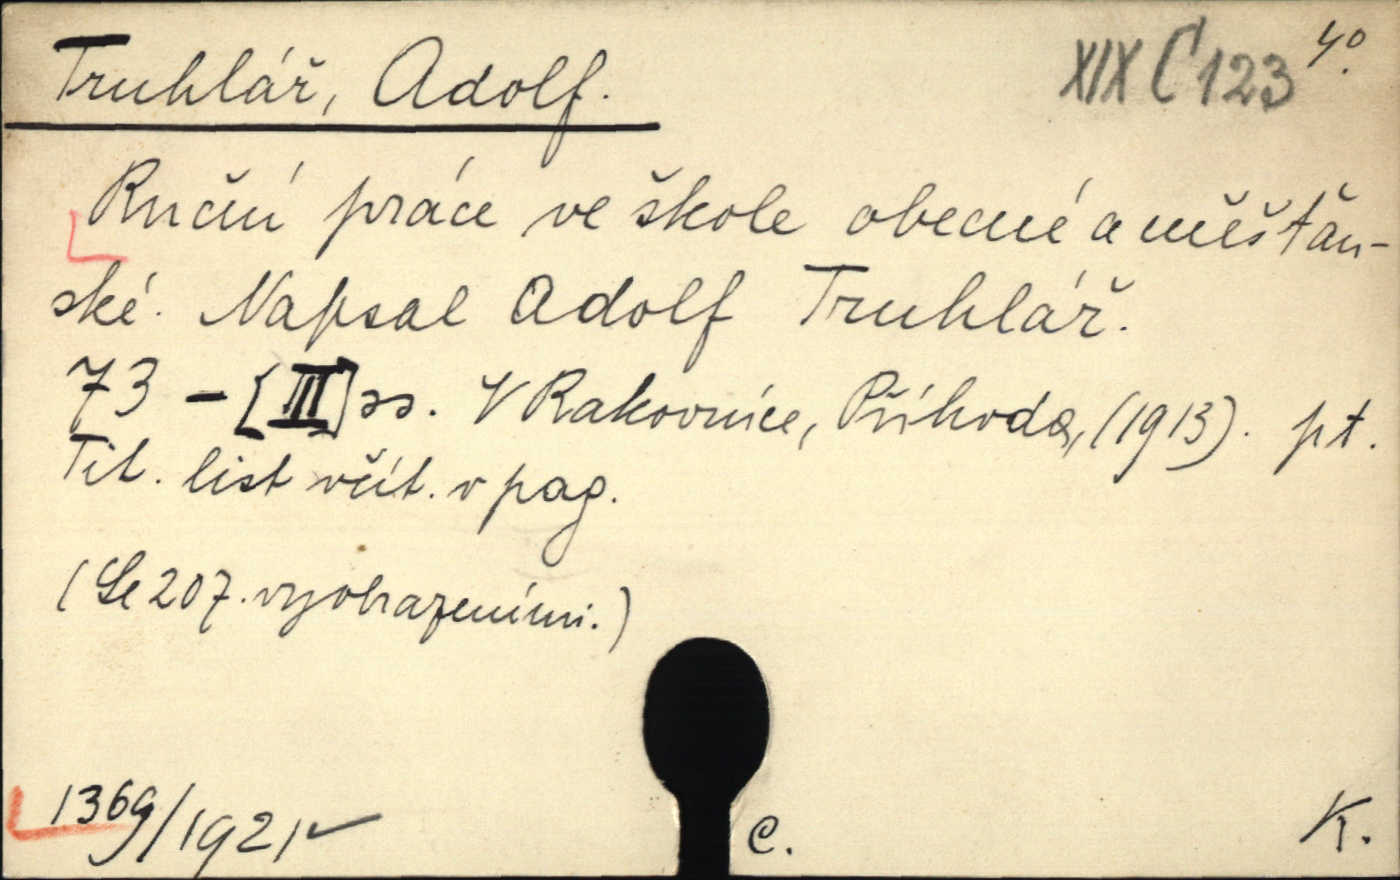 Truhlář, Adolf.
XIX C 123
4º.
Ruční práce ve škole obecné a měšťan-
ské. Napsal Adolf Truhlář.
73 - [III] ss. V Rakovníce, Příhoda, (1913). pt.
Tit. list včít. v pag.
(Se 207. vyobrazeními.)
1369/1921
C.
K.